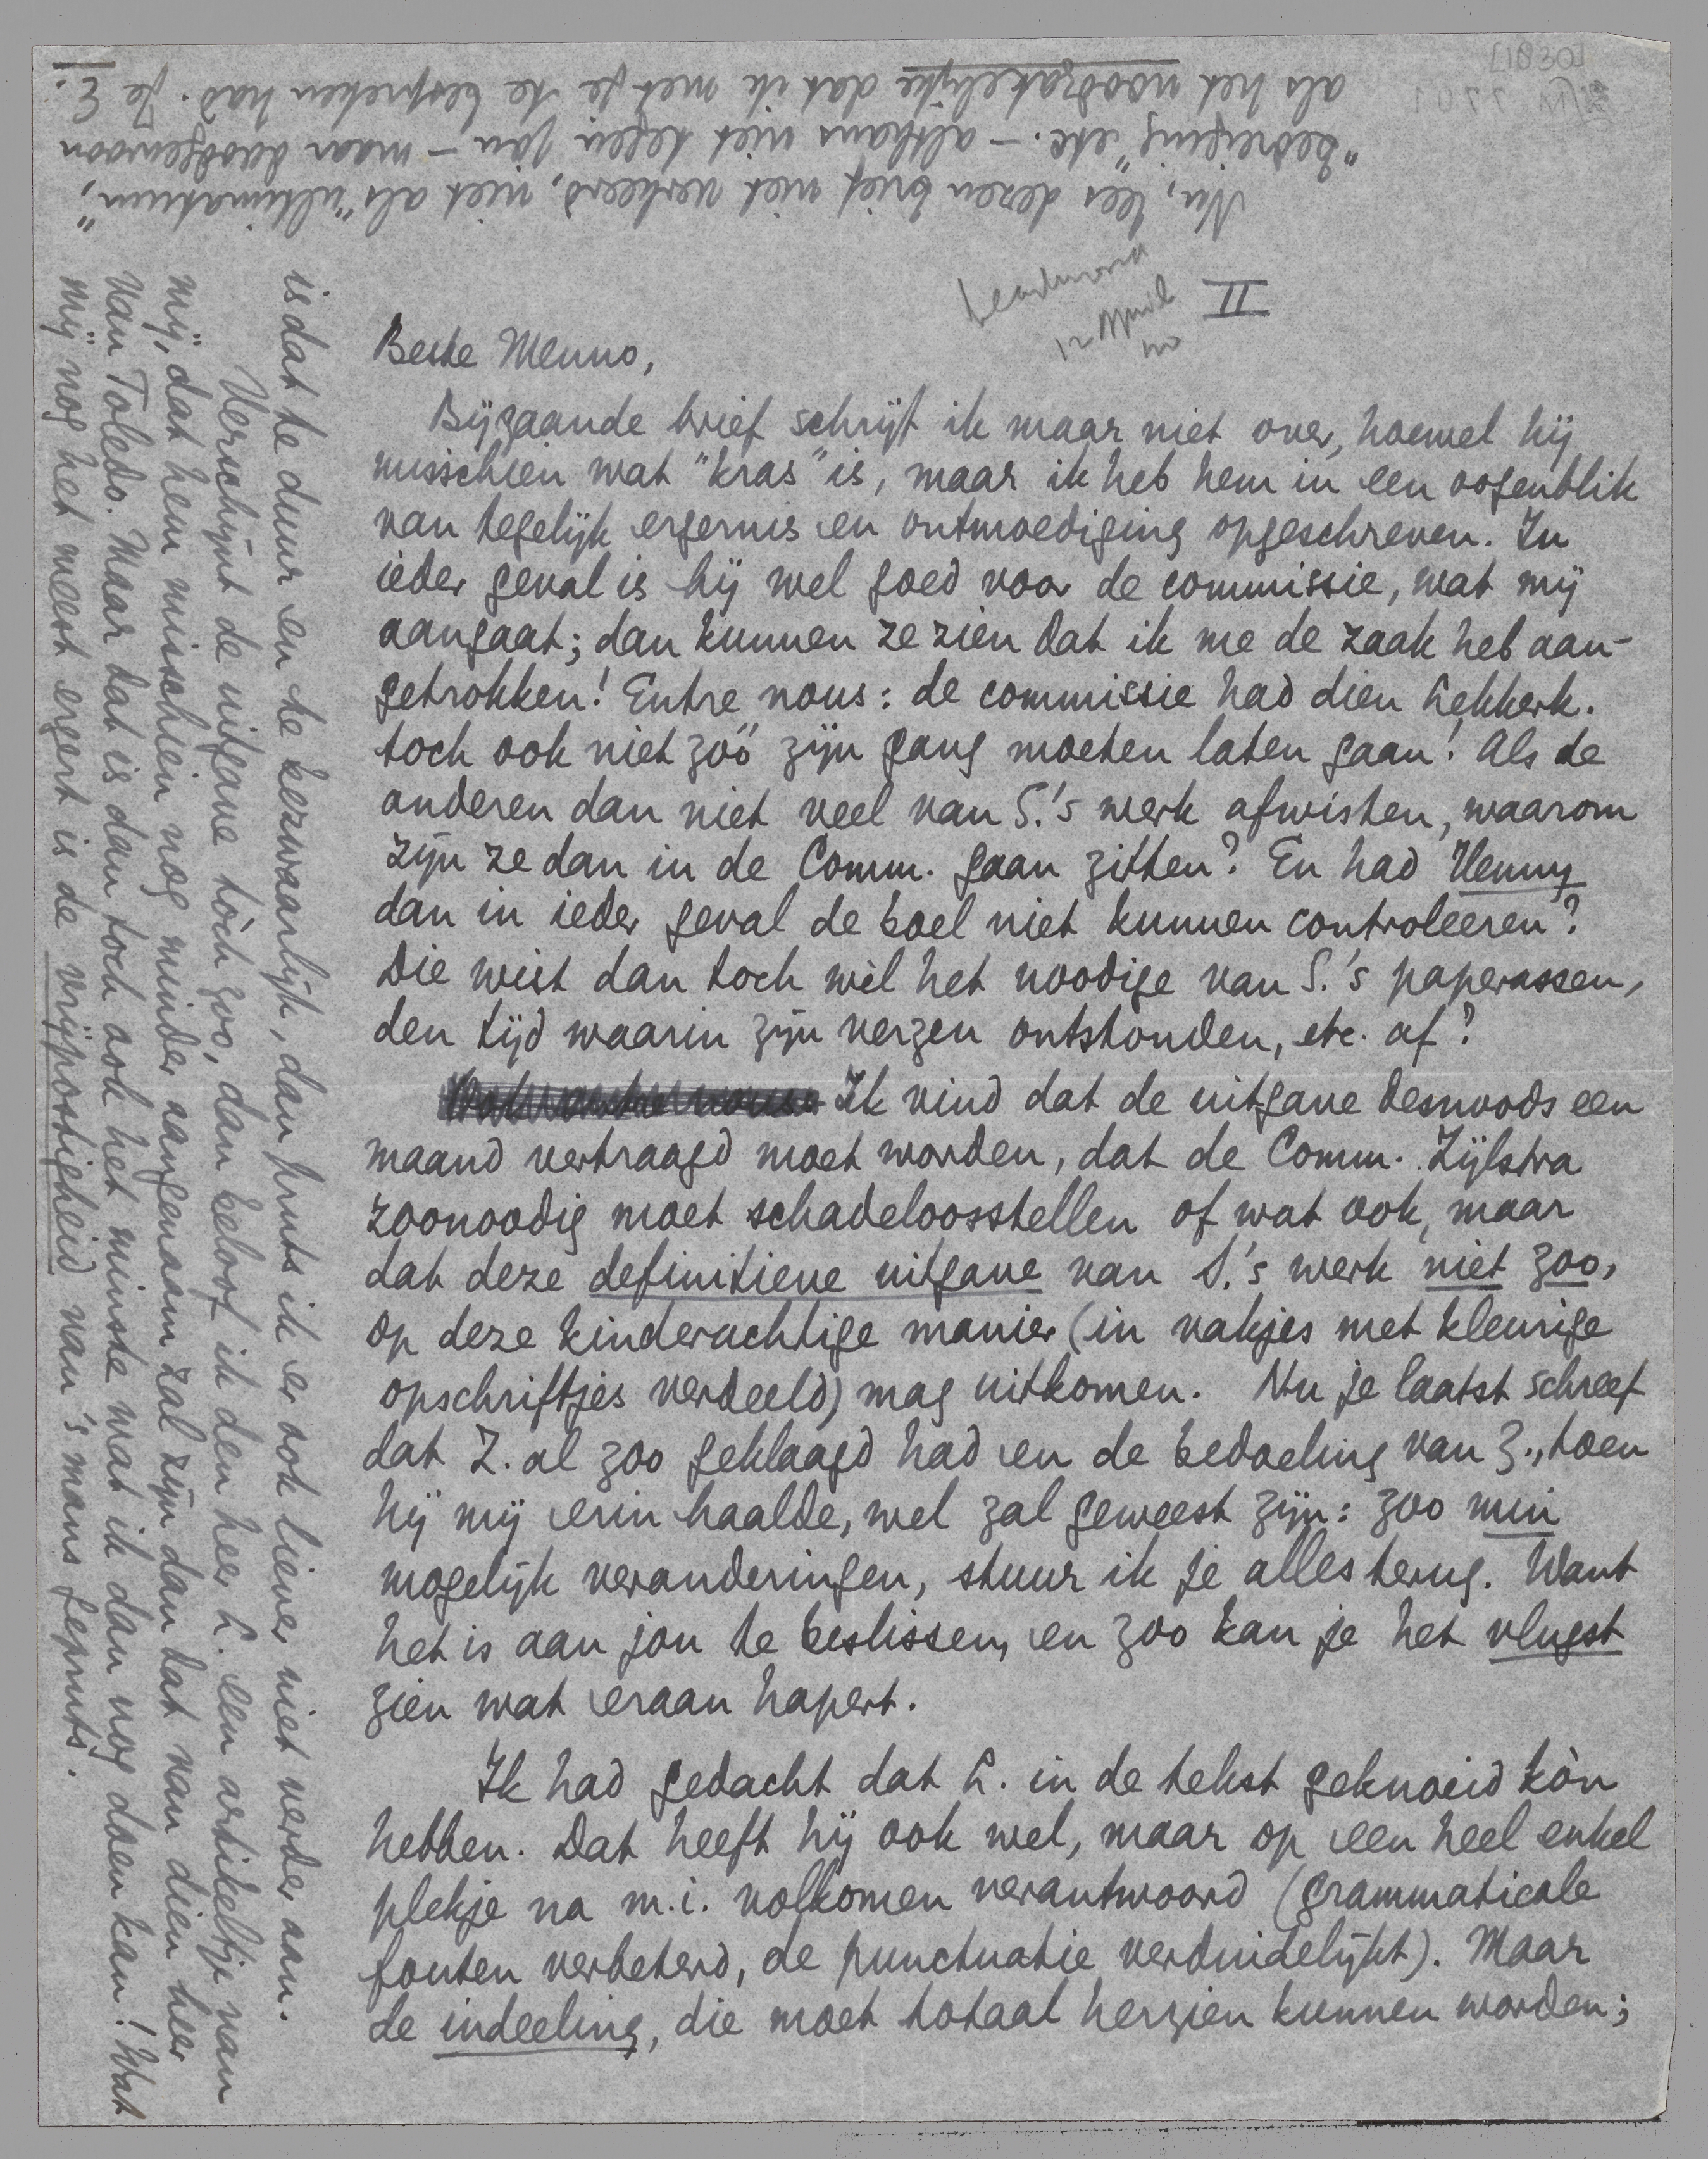 II
Beste Menno,
Bijgaande brief schrijf ik maar niet over, hoewel hij
misschien wat "kras" is, maar ik heb hem in een oogenblik
van tegelijk ergernis en ontmoediging opgeschreven. In
ieder geval is hij wel goed voor de commissie, wat mij
aangaat; dan kunnen ze zien dat ik me de zaak heb aan-
getrokken! Entre nous: de commissie had dien Lekkerk.
toch ook niet zóó zijn gang moeten laten gaan! Als de
anderen dan niet veel van S.'s werk afwisten, waarom
zijn ze dan in de Comm. gaan zitten? En had Henny
dan in ieder geval de boel niet kunnen controleeren?
Die wist dan toch wèl het noodige van S.'s paperassen,
den tijd waarin zijn verzen ontstonden, etc. af?
Ik vind dat de uitgave desnoods een
maand vertraagd moet worden, dat de Comm. Zijlstra
zoonoodig moet schadeloosstellen of wat ook, maar
dat deze definitieve uitgave van S.'s werk niet zoo,
op deze kinderachtige manier (in vakjes met kleurige
opschriftjes verdeeld) mag uitkomen. Nu je laatst schreef
dat Z. al zoo geklaagd had en de bedoeling van Z., toen
hij mij erin haalde, wel zal geweest zijn: zoo min
mogelijk veranderingen, stuur ik je alles terug. Want
het is aan jou te beslissen, en zoo kan je het vlugst
zien wat eraan hapert.
Ik had gedacht dat L. in de tekst geknoeid kòn
hebben. Dat heeft hij ook wel, maar op een heel enkel
plekje na m.i. volkomen verantwoord (grammaticale
fouten verbeterd, de punctuatie verduidelijkt). Maar
de indeeling, die moet totaal herzien kunnen worden;
is dat te duur en te bezwaarlijk, dan pruts ik er ook liever niet verder aan.
Verschijnt de uitgave tòch zoo, dan beloof ik den heer L. een artikeltje van
mij, dat hem misschien nog minder aangenaam zal zijn dan dat van dien heer
van Toledo. Maar dat is dan toch ook het minste wat ik dan nog doen kan! Wat
mij nog het meest ergert is de vrijpostigheid van 's mans gepruts.
Nu, lees dezen brief niet verkeerd, niet als "ultimatum",
"bedreiging" etc. – althans niet tegen jou – maar doodgewoon
als het noodzakelijke dat ik met je te bespreken had. Je
E.
12 April